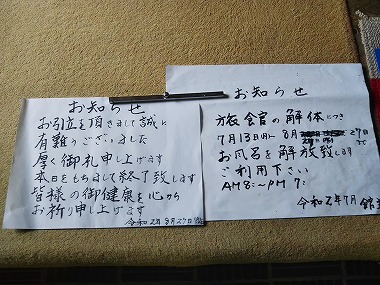 お知らせ
お引立を頂きまして誠に
有難うございました
厚く御礼申し上げます
本日をもちまして終了致します
皆様の御健康を心から
お祈り申し上げます
令和2年8月27日
お知らせ
旅舍官の解体につき
7月13日(月)~8月 27日
まで
お風呂を解放致します
ご利用下さい
AM8:~PM7:
令和2年7月 館主